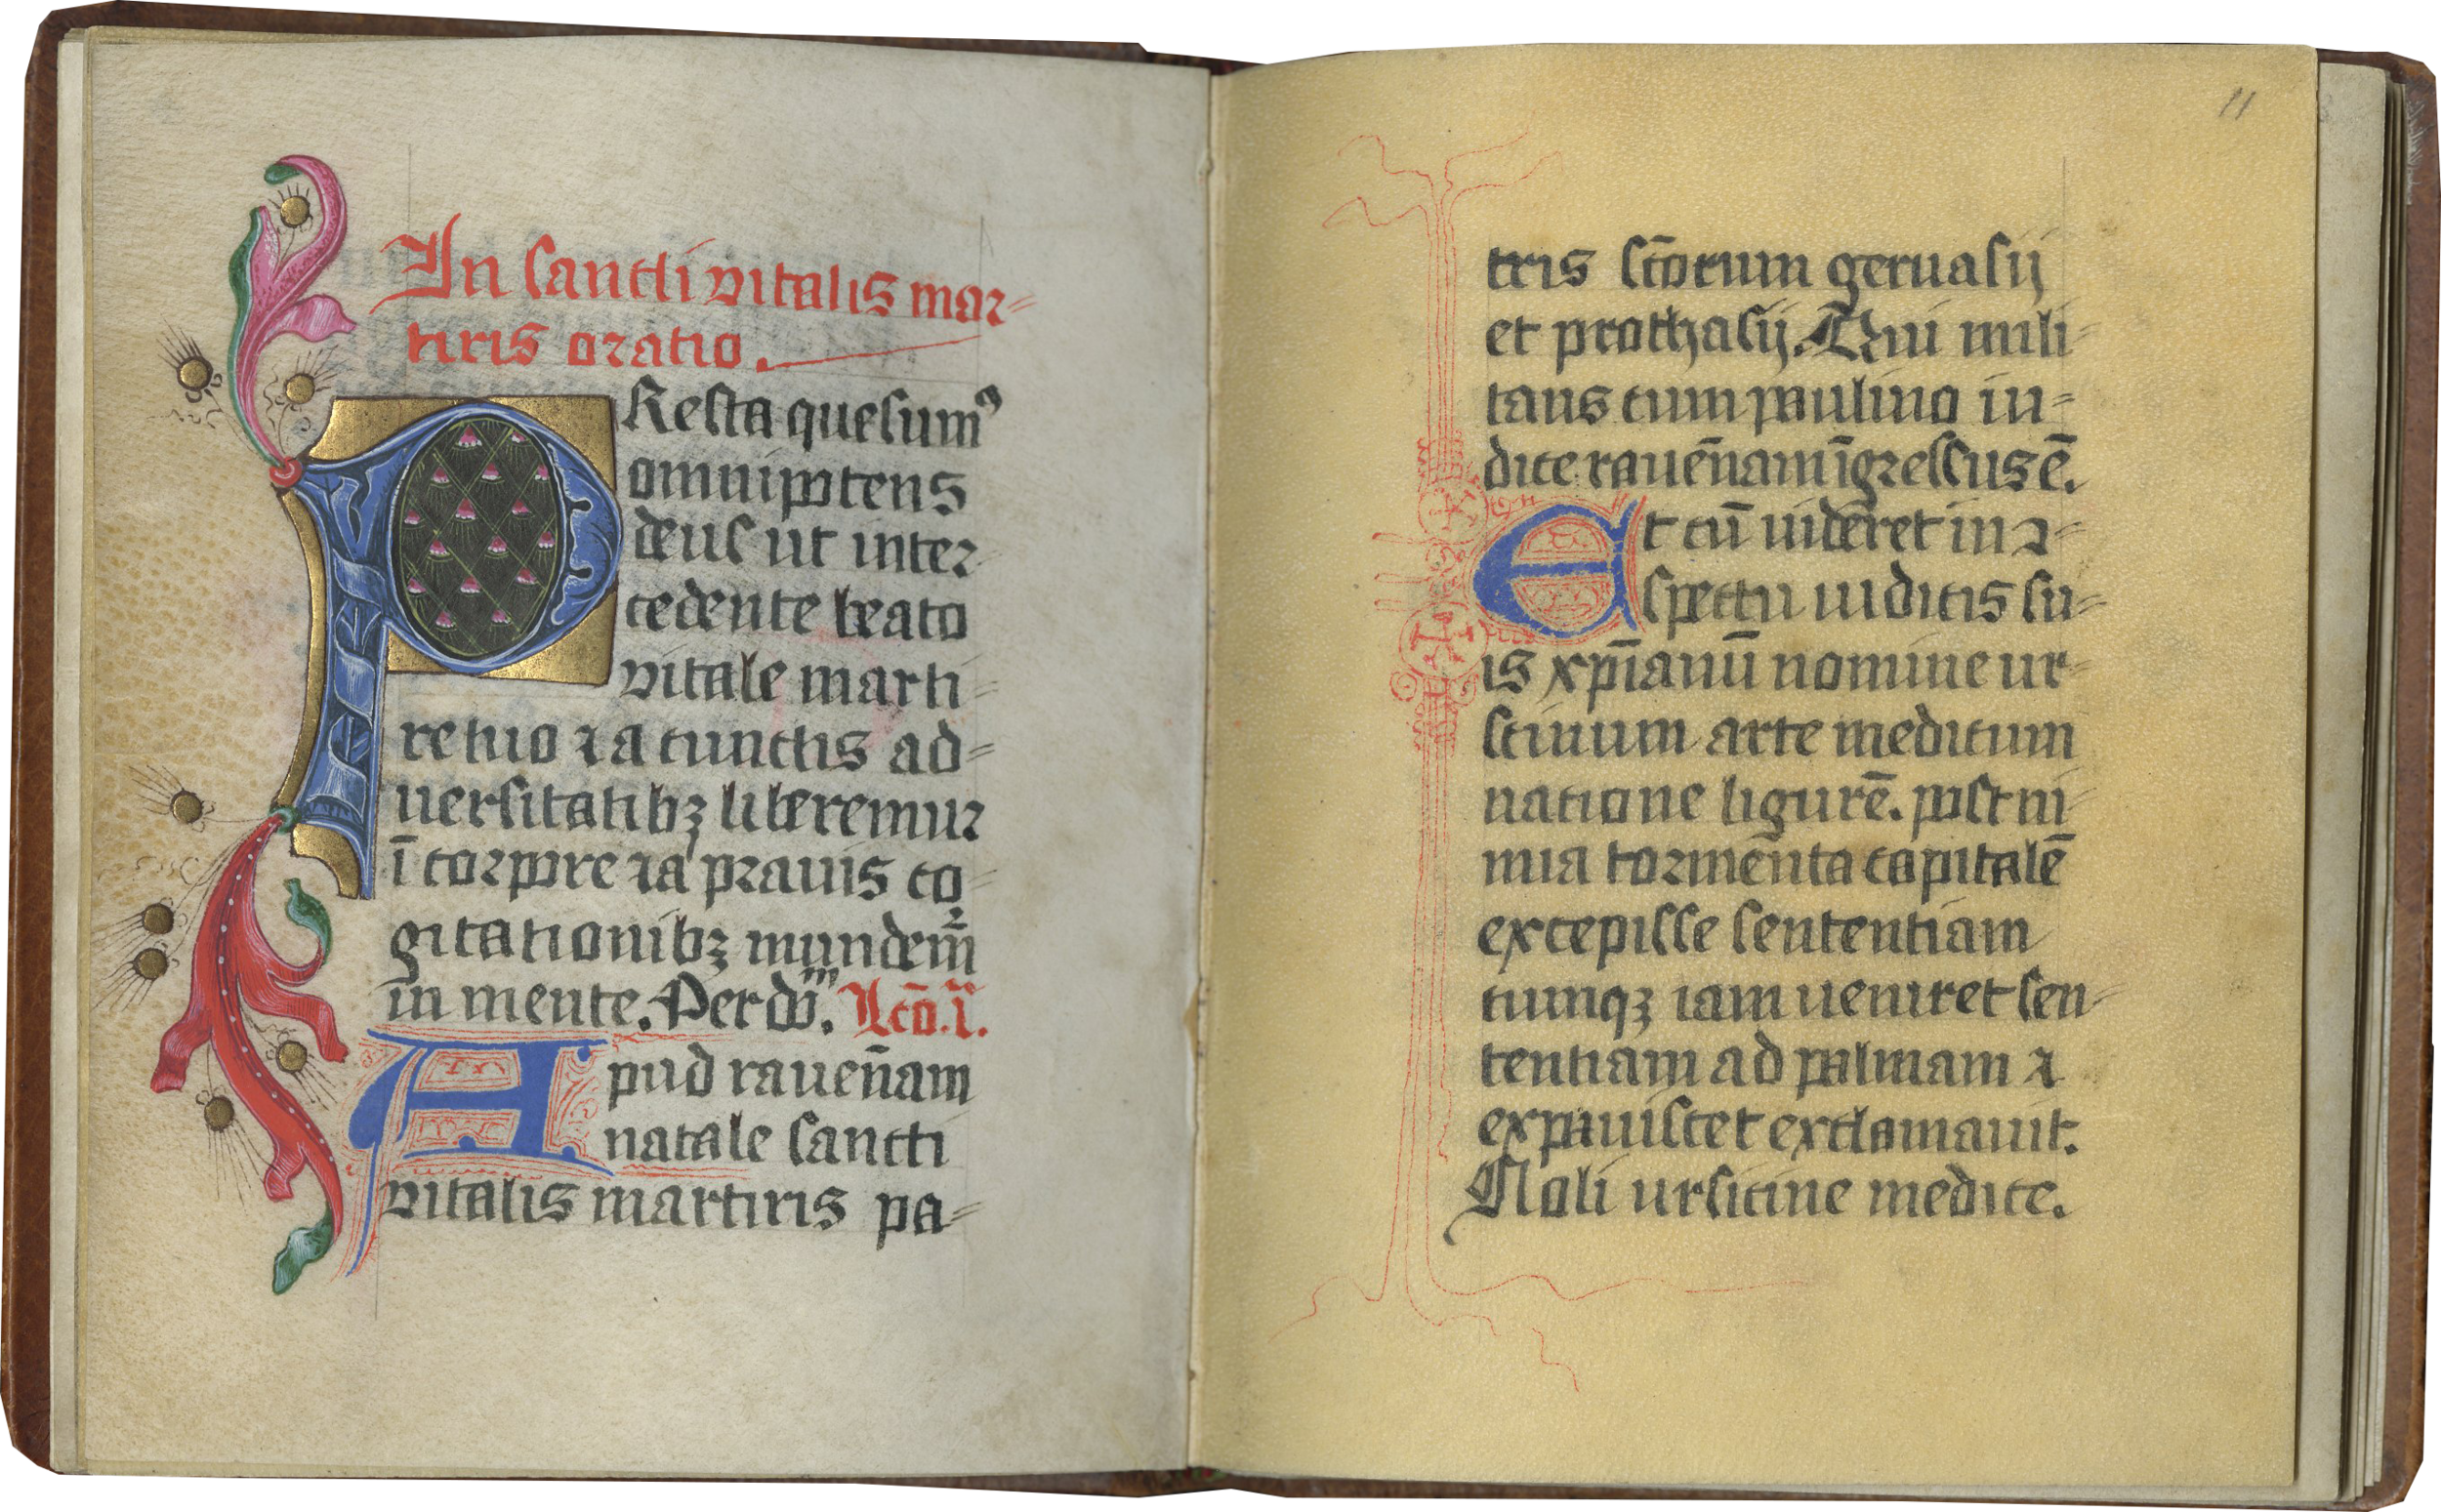 In sancti vitalis mar=
tiris oratio.
PResta quesumꝰ
omnipotens
deus ut inter-
cedente beato
vitale marti-
re tuo ⁊ a cunctis ad=
uersitatibꝫ liberemur
ī corpore ⁊ a prauis co-
gitationibꝫ mundem̄
in mente. Per dn̄m. Lcō.i.
Apud rauen̄am
natale sancti
vitalis martiris pa=
11
tris sc̄torum geruasij
et prothasij. Qui mili-
tans cum paulino iu=
dice rauen̄am īgressus ē.
Et cū uideret in ↄ-
spectu iudicis su=
is xp̄ianū nomine ur-
scinum arte medicum
natione ligurē. post ni-
mia tormen̄ta capitalē
excepisse sententiam
cumqꝫ iam ueniret sen-
tentiam ad palmam ⁊
expauiscet exclamauit.
Noli ursicine medice.